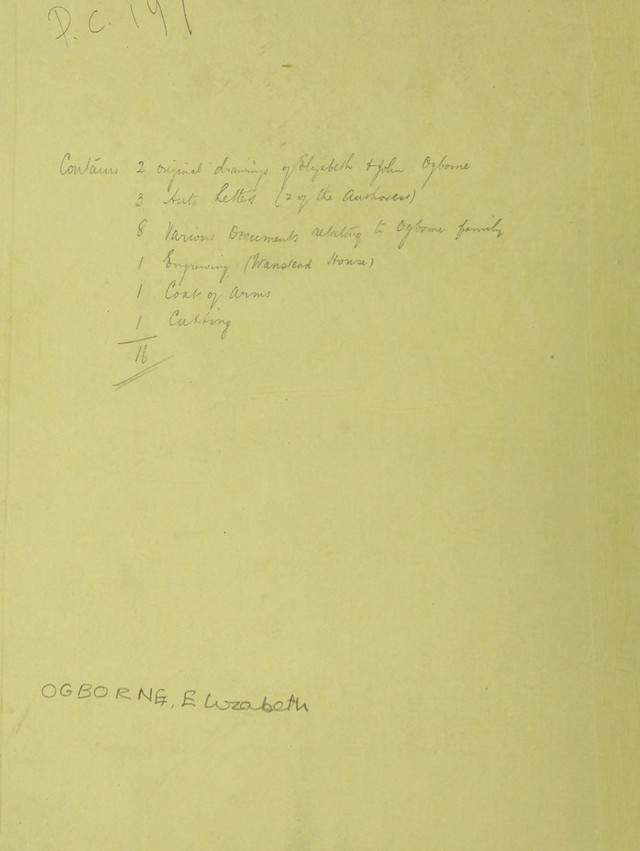 P. C. 191
Contains 2 original drawings of Elizabeth & John Ogborne
3 Auto Letters (2 of the Authoress)
8 Various Documents relating to Ogborne family
1 Engraving (Wanstead House)
1 Coat of arms
1 Cutting
16
OGBORNE, Elizabeth